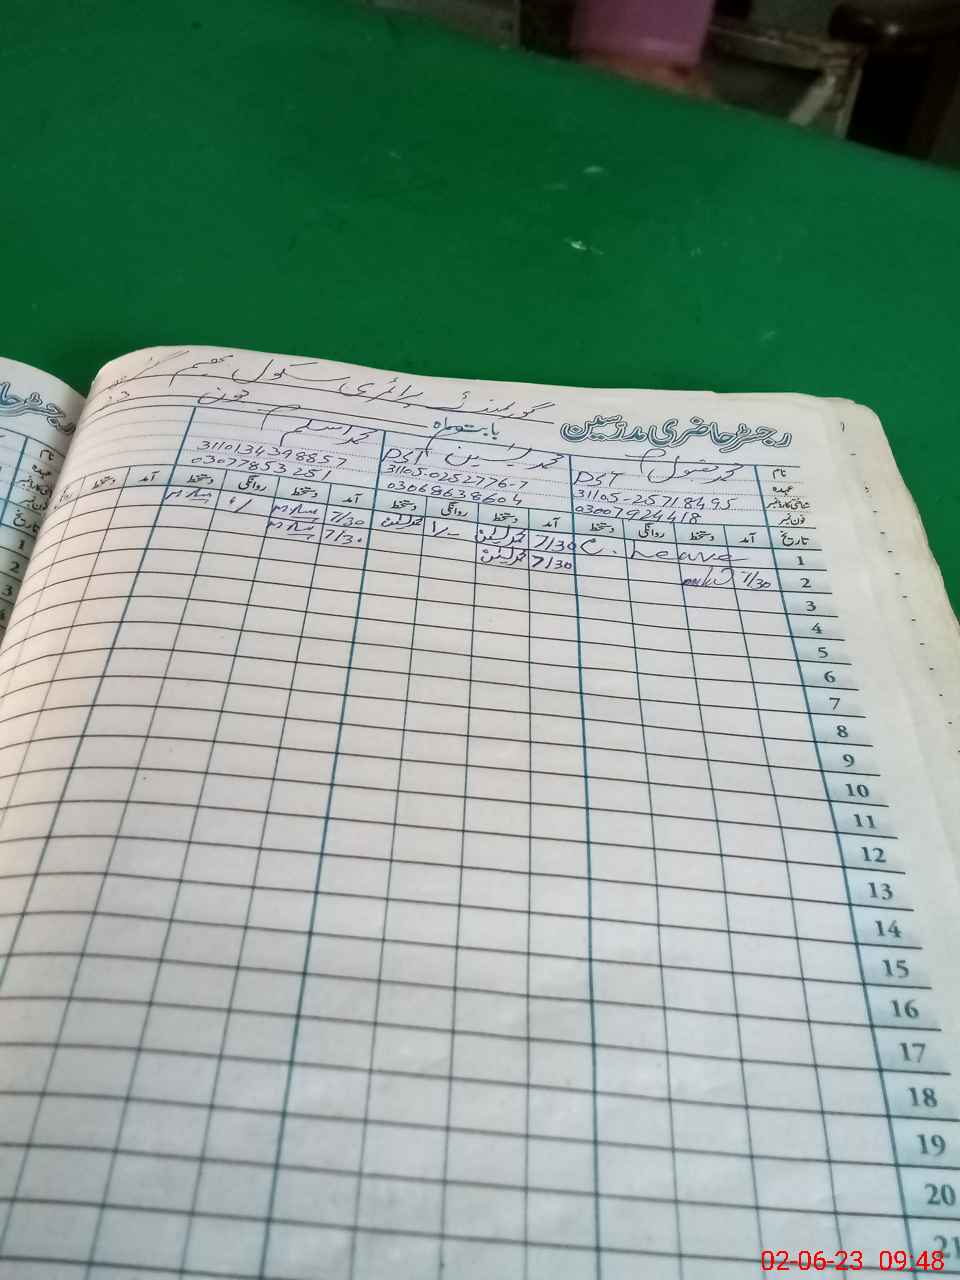 گورنمنٹ پرائمری سکول
رجسٹر حاضری مدرسین بابت ماہ جون
نام محمد مقبول محمد یٰسین محمد اسلم
عہدہ PST PST
شناختی کارڈ نمبر 31105-25718495 31105-0252776-7 3110134398857
فون نمبر 03007924418 03068638604 03077853251
تاریخ آمد دستخط روانگی دستخط آمد دستخط روانگی دستخط آمد دستخط روانگی دستخط آمد دستخط
1 C. Leave 7/30 محمد یٰسین 1/- محمد یٰسین 7/30
2 7/30 7/30 محمد یٰسین 7/30
3
4
5
6
7
8
9
10
11
12
13
14
15
16
17
18
19
20
21
رجسٹر حا
نام
عہدہ
تاریخ
1
2
3
02-06-23 09:48